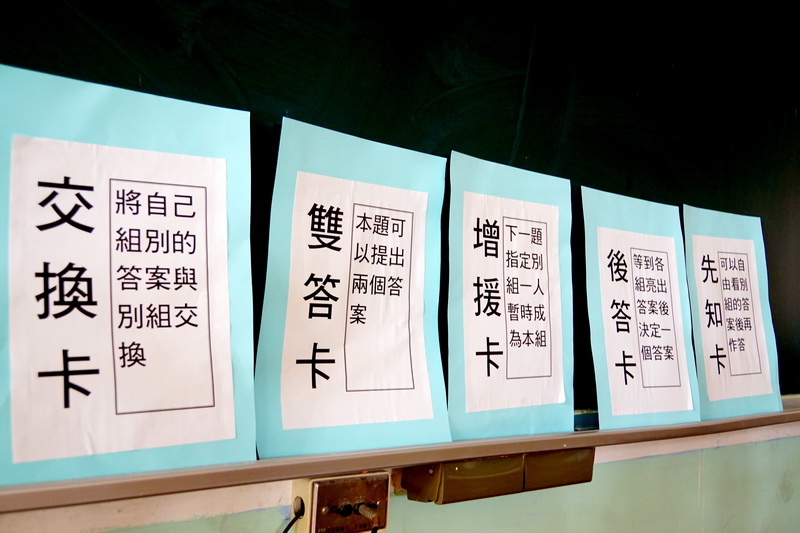 交換卡
將自己
組別的
答案與
別組交
換
雙答卡
本題可
以提出
兩個答
案
增援卡
下一題
指定別
組一人
暫時成
為本組
後答卡
等到各
組亮出
答案後
決定一
個答案
先知卡
可以自
由看別
組的答
案後再
作答